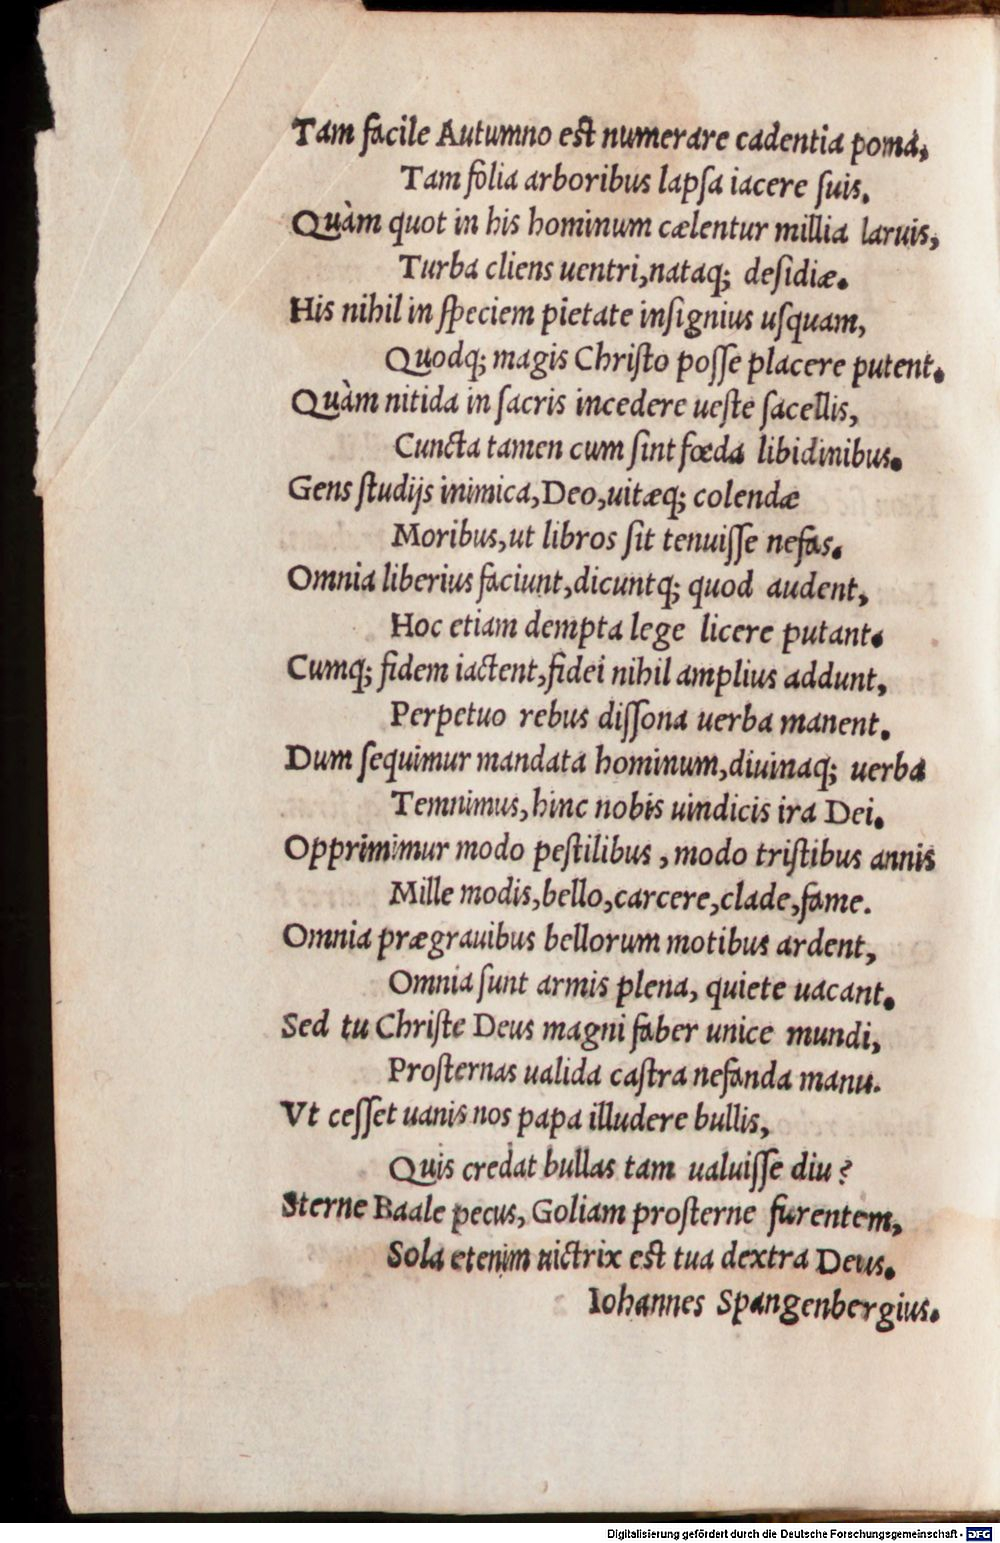 Tam facile Autumno est numerare cadentia poma,
Tam folia arboribus lapſa iacere ſuis.
Quàm quot in his hominum cælentur millia laruis,
Turba cliens uentri, nataq; deſidiæ.
His nihil in ſpeciem pietate inſignius uſquam,
Quodq; magis Chriſto poſſe placere putent.
Quàm nitida in ſacris incedere ueſte ſacellis,
Cuncta tamen cum ſint fœda libidinibus.
Gens ſtudijs inimica, Deo, uitæq; colendæ
Moribus, ut libros ſit tenuiſſe nefas.
Omnia liberius faciunt, dicuntq; quod audent,
Hoc etiam dempta lege licere putant.
Cumq; fidem iactent, fidei nihil amplius addunt,
Perpetuo rebus diſſona uerba manent.
Dum ſequimur mandata hominum, diuinaq; uerba
Temnimus, hinc nobis uindicis ira Dei.
Opprimimur modo peſtilibus, modo triſtibus annis
Mille modis, bello, carcere, clade, fame.
Omnia prægrauibus bellorum motibus ardent,
Omnia ſunt armis plena, quiete uacant.
Sed tu Chriſte Deus magni faber unice mundi,
Proſternas ualida caſtra nefanda manu.
Vt ceſſet uanis nos papa illudere bullis,
Quis credat bullas tam ualuiſſe diu?
Sterne Baale pecus, Goliam proſterne furentem,
Sola etenim uictrix est tua dextra Deus.
Iohannes Spangenbergius.
Digitalisierung gefördert durch die Deutsche Forschungsgemeinschaft - DFG